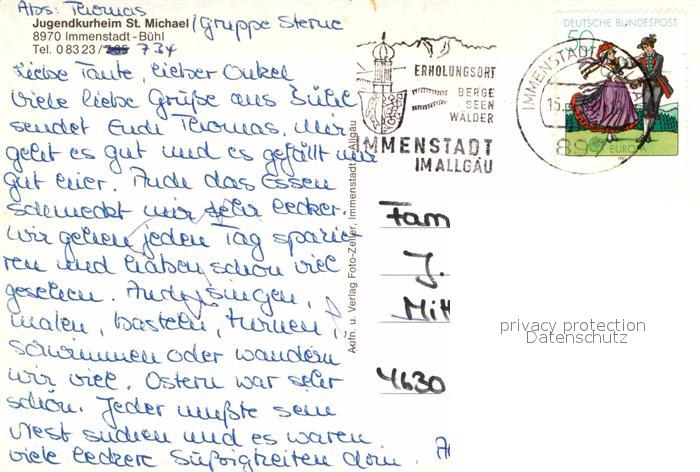 Abs: Thomas
Jugendkurheim St. Michael / Gruppe Sterne
8970 Immenstadt-Bühl
Tel. 0 83 23 / 734
Liebe Tante, lieber Onkel
Viele liebe Grüße aus Bühl
sendet Euch Thomas. Mir
geht es gut und es gefällt mir
gut hier. Auch das Essen
schmeckt mir sehr lecker.
Wir gehen jeden Tag spazie-
ren und haben schon viel
gesehen. Auch singen,
malen, basteln, turnen,
schwimmen oder wandern
wir viel. Ostern war sehr
schön. Jeder mußte sein
Nest suchen und es waren
viele leckere Süßigkeiten drin.
Aufn. u. Verlag Foto-Zeller, Immenstadt - Allgäu
ERHOLUNGSORT
BERGE
SEEN
WÄLDER
IMMENSTADT
IM ALLGÄU
DEUTSCHE BUNDESPOST
50
EUROPA
IMMENSTADT
15.
897
Fam
J.
Mit
4630
privacy protection
Datenschutz